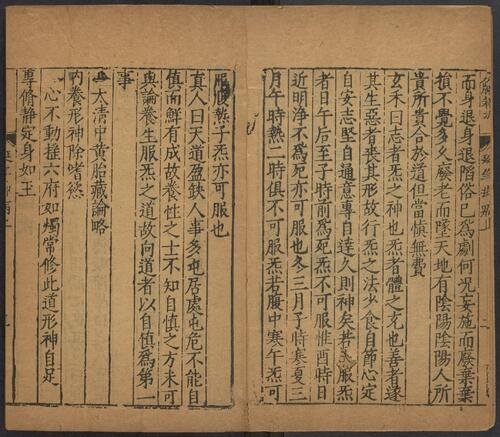 而身退身退陷俗已為劇何况妄施而廢棄棄
損不覺多久廢老而墜天地有陰陽陰陽人所
貴所貴合於道但當慎無費
玄禾曰志者炁之神也炁者體之充也善者遂
其生惡者喪其形故行炁之法少食自節心定
自安志堅自通意專自達久則神矣若夫服炁
者日午后至子時前為死炁不可服惟酉時日
近明淨不為死亦可服也冬三月子時寒夏三
月午時熱二時俱不可服炁若腹中寒午炁可
服腹熱子炁亦可服也
真人曰天道盈鈌人事多屯居處屯危不能自
慎而鮮有成故養性之士不知自慎之方未可
與論養生服炁之道故向道者以自慎為第一
事
太清中黃胎藏論略
內養形神除嗜慾
心不動摇六府如燭常修此道形神自足
專脩静定身如玉